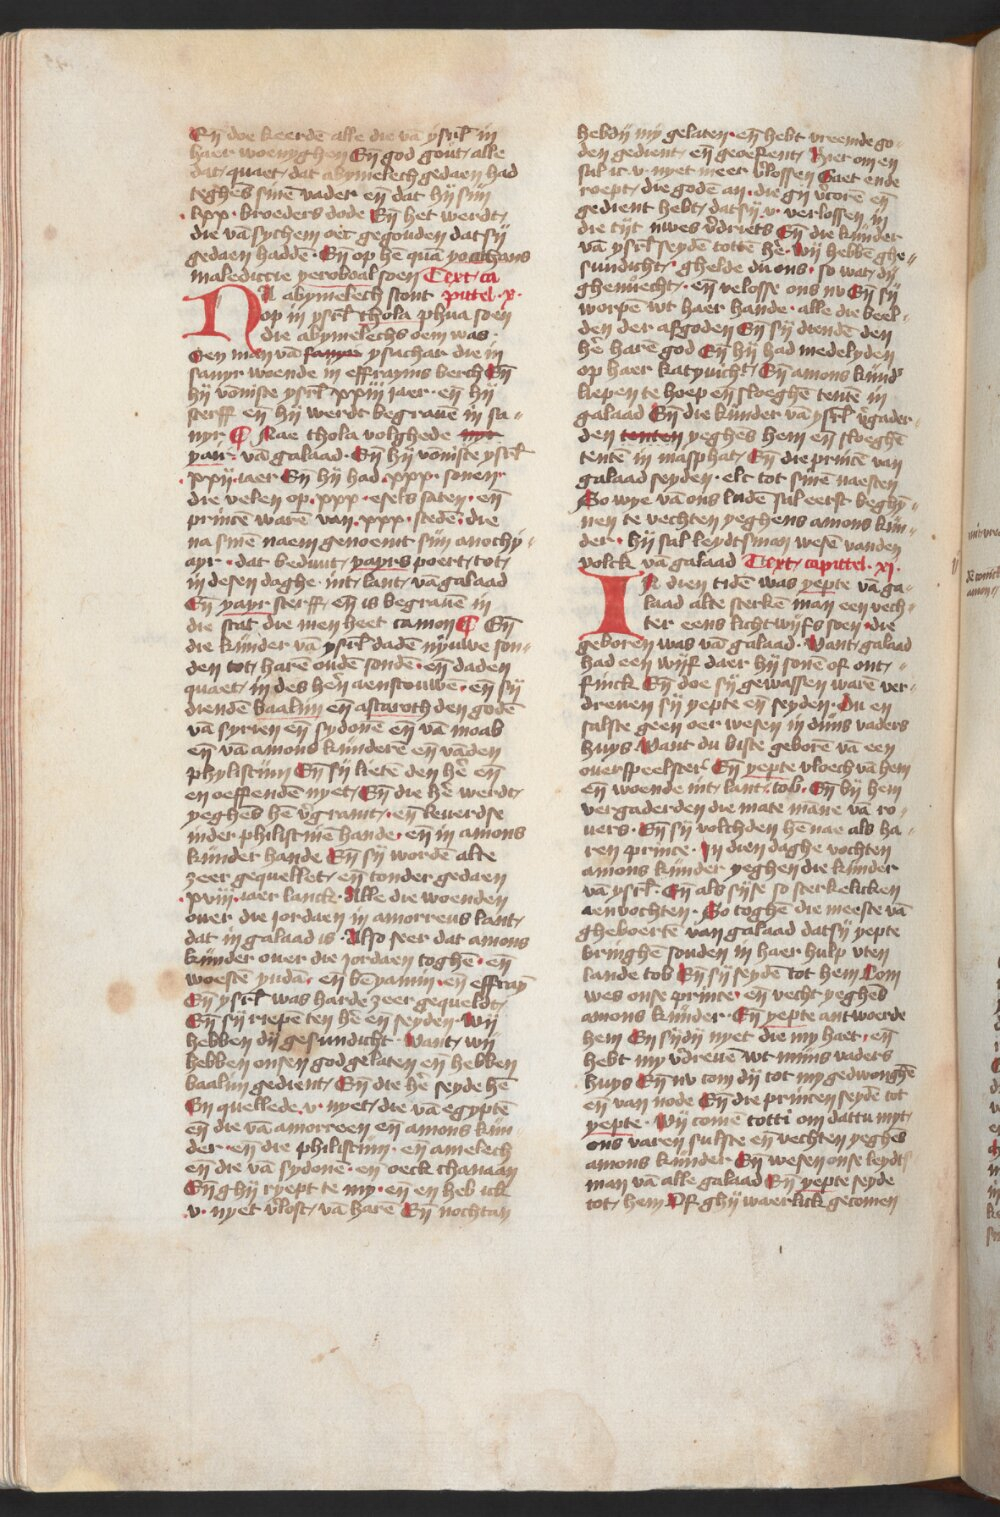 En̄ doe keerdē alle die vā ysrl̄ in
haer woenyghen En̄ god gout alle
dat quaet dat abymelech gedaen had
teghēs sinē vader en̄ dat hij sijn
lxx broeders dode En̄ het werdt
die vā sychem oec gegouden dat sij
gedaen haddē En̄ op hē quā yoathans
maledictie yeroboal soen Text ca
NA abymelech stont pittel x
op in ysrl̄ thola phua soen
die abymelechs oem was
Een man vā ysachar die in
samyr woende in effrayms berch En̄
hij vōniste ysrl̄ xxiij iaer en̄ hij
sterff en̄ hij werdt begrauē in sa
myr Nae thola volghede
yair vā galaad En̄ hij voniste ysrl̄
xxij iaer En̄ hij had xxx sonen
die velen op xxx esels saten en̄
princē warē van xxx stedē die
na sinē naem genoemt sijn anothy
ayr dat beduut yayrs poert tot
in desen daghe int lant vā galaad
En̄ yayr sterff en̄ is begrauē in
die stat die men heet camon En̄
die kinder vā ysrl̄ dadē nyuwe son
den tot harē oudē sondē en̄ daden
quaet in des hērē aenscouwē en̄ sij
diendē baalim en̄ astaroth den godē
vā syrien en̄ sydonē en̄ vā moab
en̄ vā amons kinderē en̄ vāden
phylistijn En̄ sij lietē den hē en̄
en oeffendē nyet En̄ die hē werdt
yeghēs hē v̄gramt en̄ leuerdse
inder philistinē hande en̄ in amons
kinder hande En̄ sij wordē alte
zeer gequellet en̄ tonder gedaen
xviij iaer lanck Alle die woenden
ouer die jordaen in amorreus lant
dat in galaad is Also seer dat amons
kinder ouer die jordaen toghē en̄
woestē yudā en̄ bēyamin en̄ effray
En̄ ysrl̄ was harde zeer gequeldt
En̄ sij riepē ten hē en̄ seyden Wij
hebben dij gesundicht Want wij
hebben onsen god gelaten en̄ hebben
baalim gedient En̄ die hē seyde hē
En quellede v nyet die vā egyptē
en̄ die vā amorreen en̄ amons kin
der en̄ die philistijn en̄ amelech
en̄ die vā sydonē en̄ oeck chanaan
En̄ ghij ryept te my en̄ en heb ick
v nyet v̄lost vā harē En̄ nochtan
hebdij mij gelaten en̄ hebt vreemde go
den gedient en̄ geoefent Hier om en
sal ic v nyet meer v̄lossen Gaet ende
roept die godē an die gij v̄corē en̄
gedient hebt dat sij v verlossen in
die tijt uwes v̄driets En̄ die kinder
vā ysrl̄ seydē tottē hē Wij hebbē ghe
sundicht ghelde du ons so wat dij
ghenuecht en̄ v̄losse ons nv En̄ sij
worpē wt haer hande alle die beel
den der afgoden En̄ sij diendē den
hē harē god En̄ hij had medelyden
op haer katyuicht En̄ amons kind'
liepen te hoep en̄ sloeghē tentē in
galaad En̄ die kinder vā ysrl̄ v̄gader
den yeghēs hem en̄ sloeghē
tentē in masphat En̄ die princē van
galaad seyden elc tot sinē naesten
So wye vā ons ludē sal eerst beghȳ
nen te vechten yeghens amons kin
der hij sal leydtsman wesē vanden
volck vā galaad Text capittel xj
IN dien tidē was yepte vā ga
laad alte sterkē man een vech
ter eens licht wijfs soen die
geboren was vā galaad Want galaad
had een wijf daer hij sonē of ont
finck En̄ doe sij gewassen warē ver
dreuen sij yepte en̄ seyden Du en
salste geen oer wesen in dijns vaders
huys Want du biste geborē vā een
ouerspeelster En̄ yepte vloech vā hem
en̄ woende int lant tob En̄ bij hem
vergaderden die mate mānē vā ro
uers En̄ sij volchden hē nae als ha
ren prince In dien daghē vochten
amons kinder yeghen die kinder
vā ysrl̄ En̄ als sijse so sterkelicken
aenvochten So toghē die meeste vā
gheboertē van galaad dat sij yepte
bringhē souden in haer hulp vten
lande tob En̄ sij seydē tot hem Com
wes onse prince en̄ vecht yeghēs
amons kinder En̄ yepte antwoerde
hem En sijdij nyet die my haet en̄
hebt my v̄dreuē wt mijns vaders
huys En̄ nv com dij tot my gedwonghē
en̄ van node En̄ die princen seydē tot
yepte Wij comē totti om dattu myt
ons varen sulste en̄ vechten yeghēs
amons kinder En̄ wesen onse leydt
man vā alle galaad En̄ yepte seyde
tot hem Of ghij waerlick gecomen